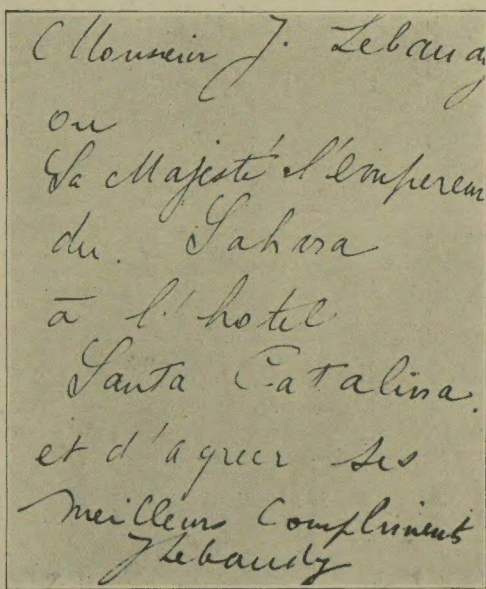 Monsieur J. Lebaudy
ou
Sa Majesté l'empereur
du. Sahara
à l'hotel
Santa Catalina.
et d'agreer ses
meilleurs Compliments
JLebaudy